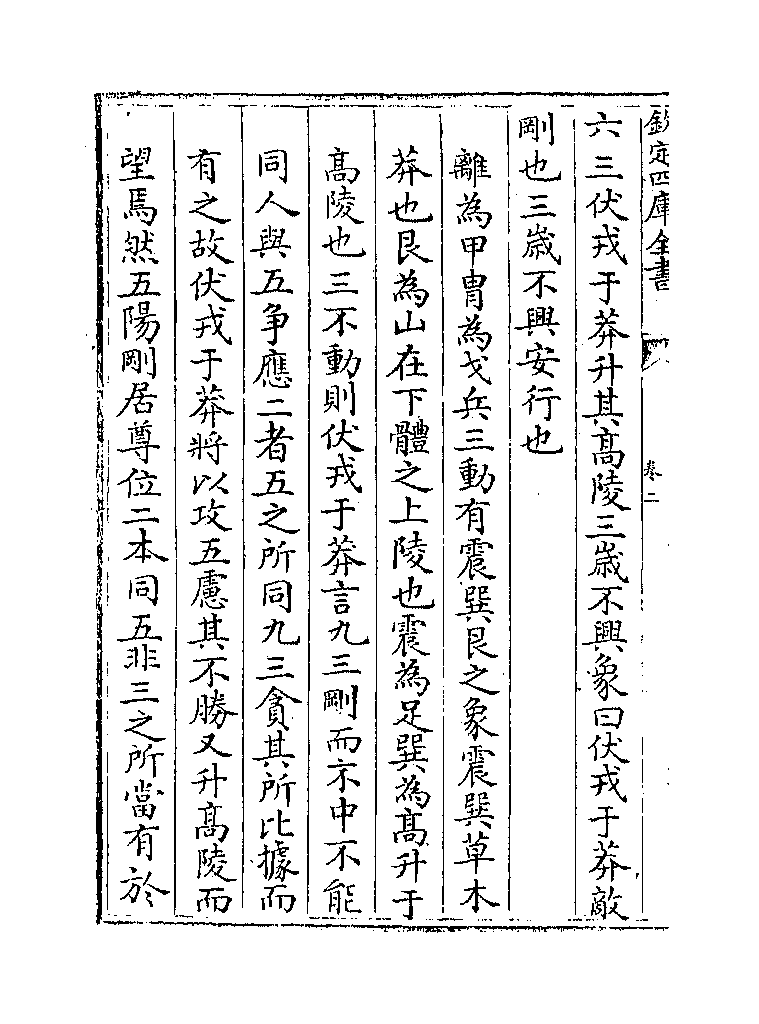 欽定四庫全書
卷二
六三伏戎于莽升其髙陵三歳不興象曰伏戎于莽敵
剛也三歳不興安行也
離為甲胄為戈兵三動有震巽艮之象震巽草木
莽也艮為山在下體之上陵也震為足巽為髙升于
髙陵也三不動則伏戎于莽言九三剛而不中不能
同人與五争應二者五之所同九三貪其所比據而
有之故伏戎于莽將以攻五慮其不勝又升髙陵而
望焉然五陽剛居尊位二本同五非三之所當有於